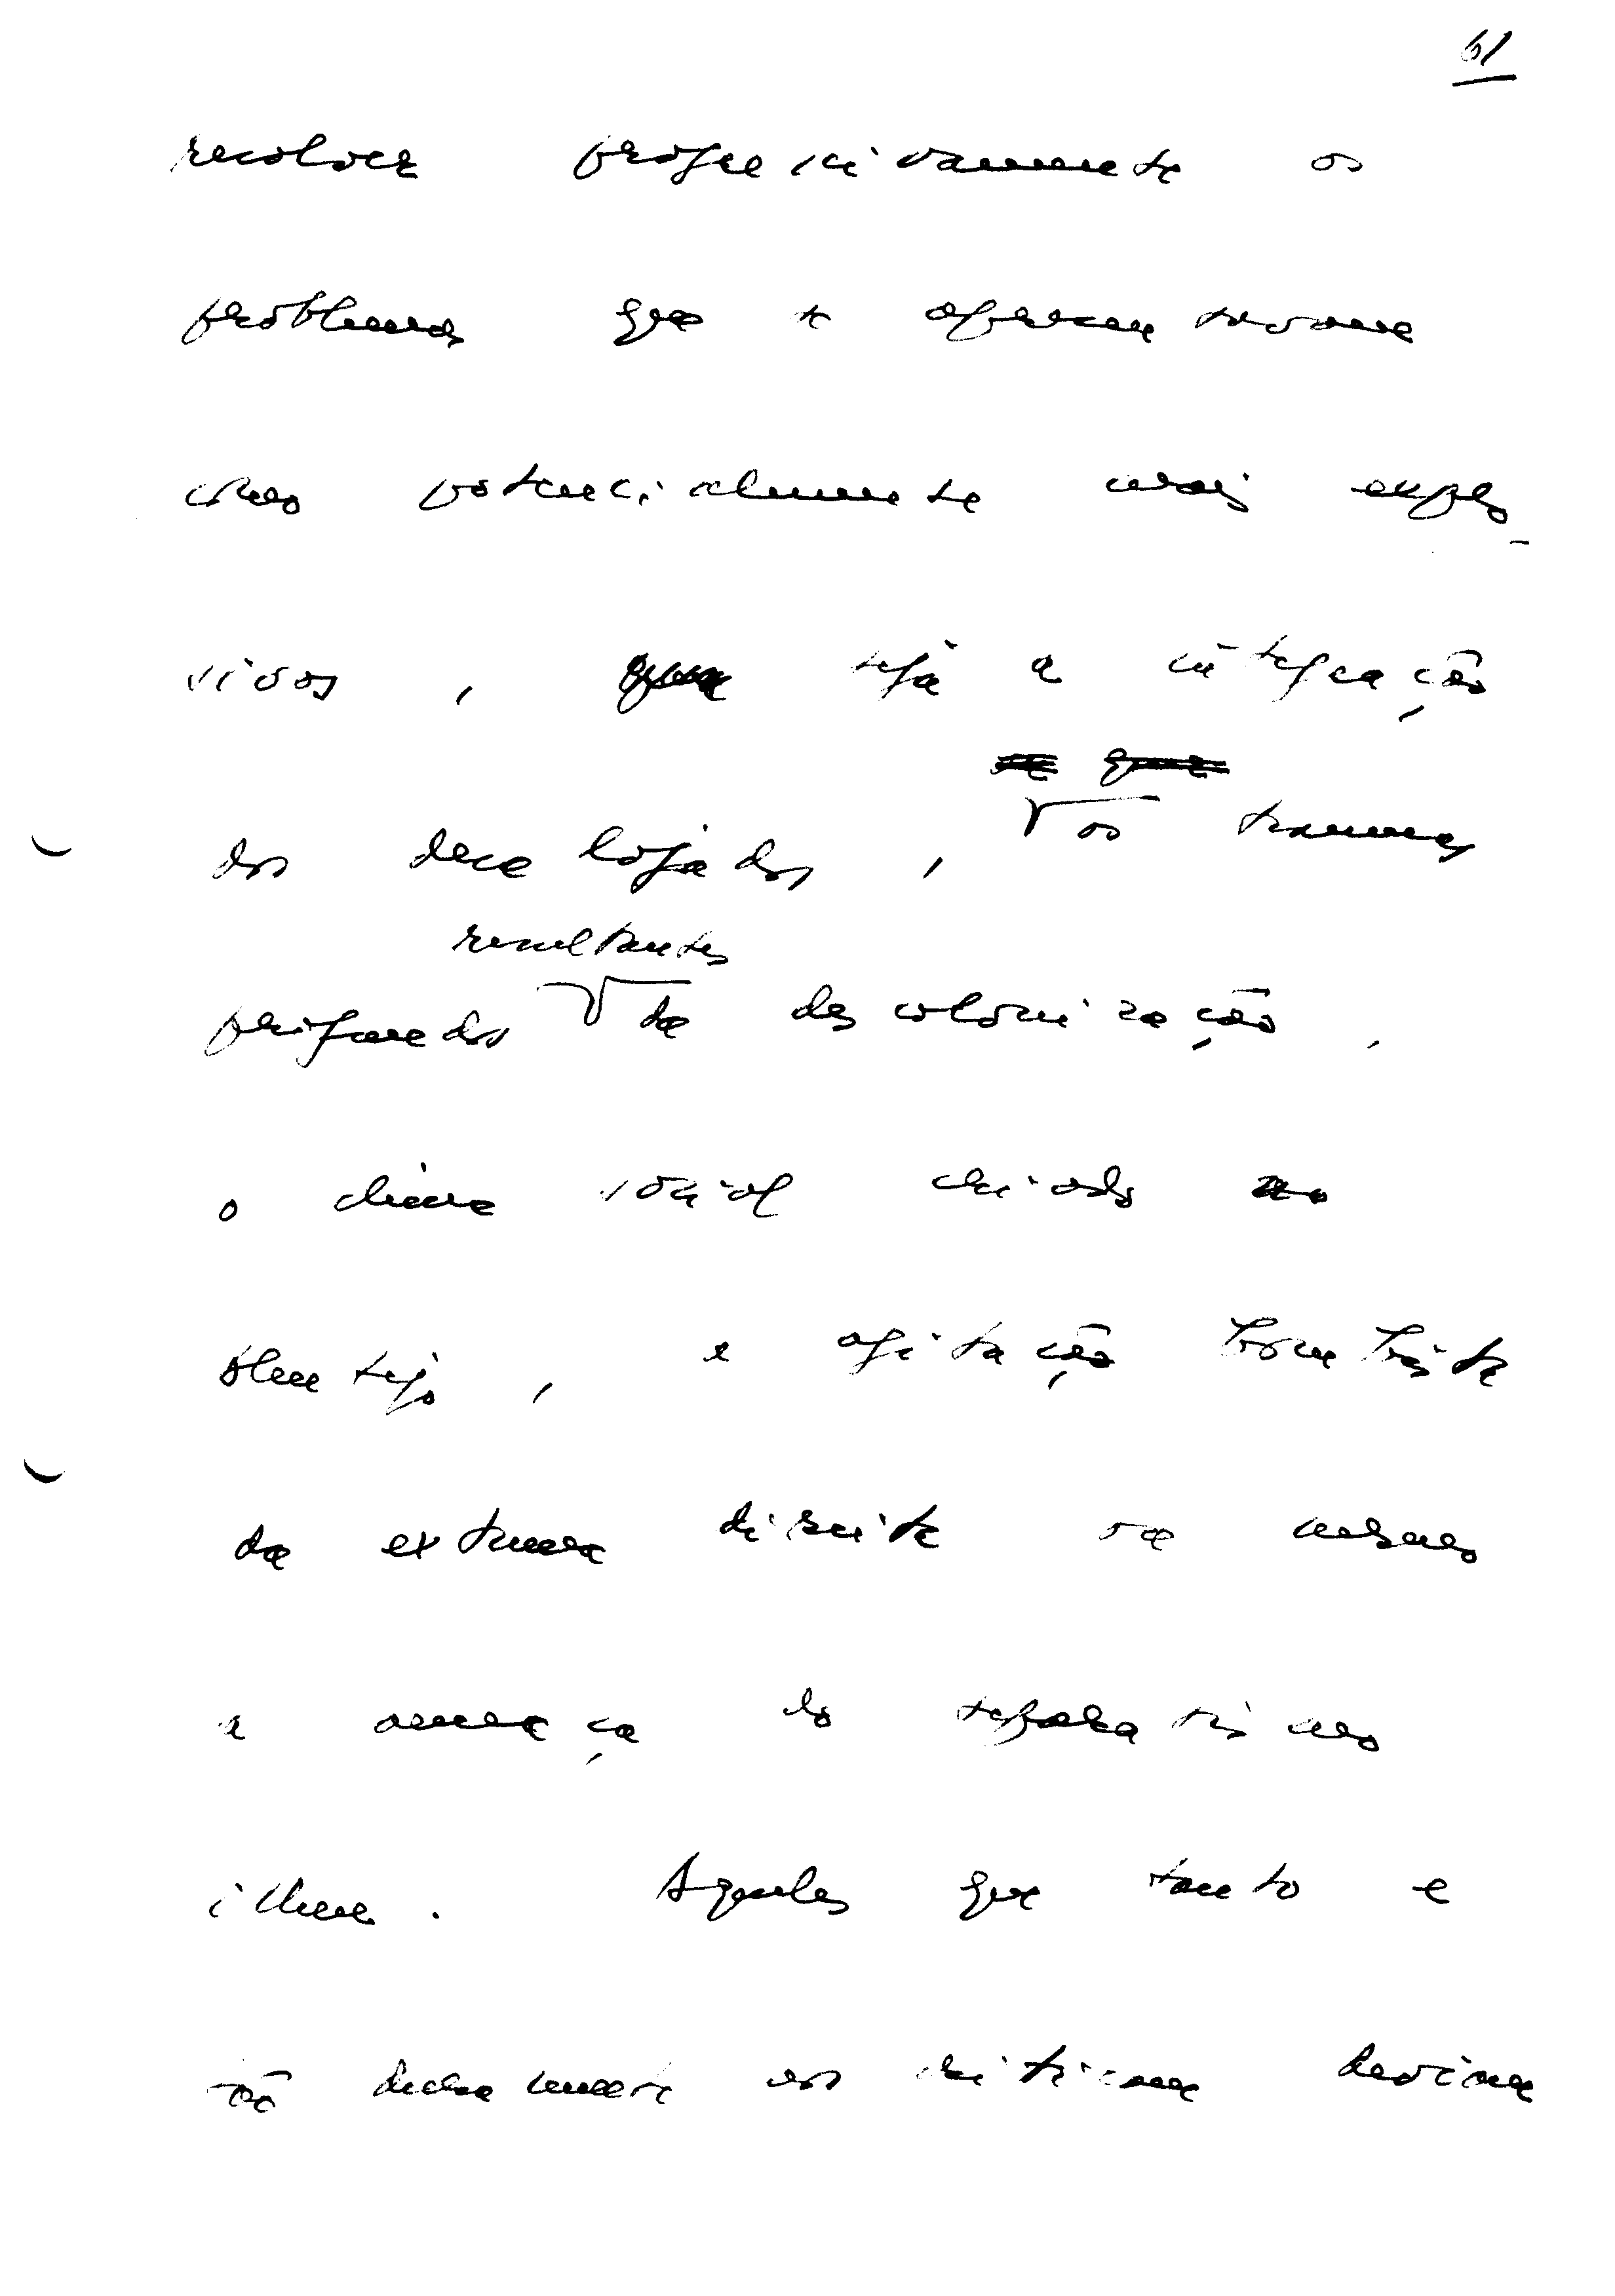 61
resolver progressivamente os
problemas que se apresentavam
como potencialmente mais explo-
sivos, seja a integração
dos desalojados, os traumas
resultantes
profundos da descolonização,
o clima social criado no
Alentejo, a agitação bombista
da extrema direita ou mesmo
a ameaça do separatismo
ilhéu. Aqueles que tanto e
tão duramente nos criticam deviam